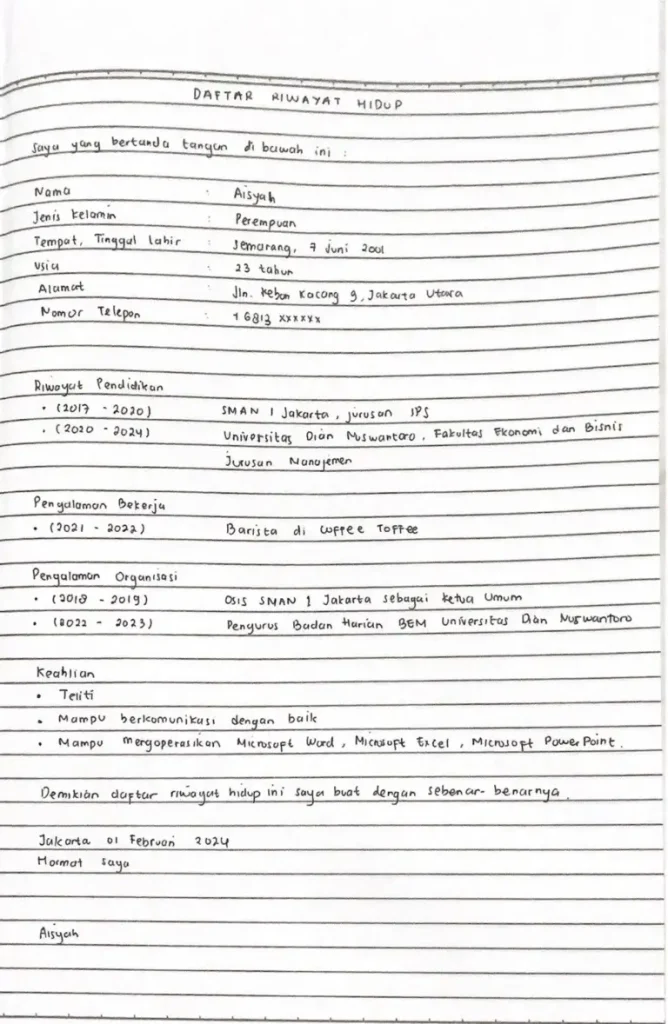 DAFTAR RIWAYAT HIDUP
Saya yang bertanda tangan di bawah ini :
Nama : Aisyah
Jenis kelamin : Perempuan
Tempat, Tinggal Lahir : Semarang, 7 Juni 2001
Usia : 23 tahun
Alamat : Jln. Kebon Kacang 9, Jakarta Utara
Nomor Telepon : xxxxxx
Riwayat Pendidikan
• (2017 - 2020) SMAN 1 Jakarta, jurusan IPS
• (2020 - 2024) Universitas Dian Nuswantoro, Fakultas Ekonomi dan Bisnis
Jurusan Manajemen
Pengalaman Bekerja
• (2021 - 2022) Barista di Coffee Toffee
Pengalaman Organisasi
• (2018 - 2019) OSIS SMAN 1 Jakarta sebagai ketua Umum
• (2022 - 2023) Pengurus Badan Harian BEM Universitas Dian Nuswantoro
Keahlian
• Teliti
• Mampu berkomunikasi dengan baik
• Mampu mengoperasikan Microsoft Word, Microsoft Excel, Microsoft PowerPoint.
Demikian daftar riwayat hidup ini saya buat dengan sebenar-benarnya.
Jakarta 01 Februari 2024
Hormat saya
Aisyah